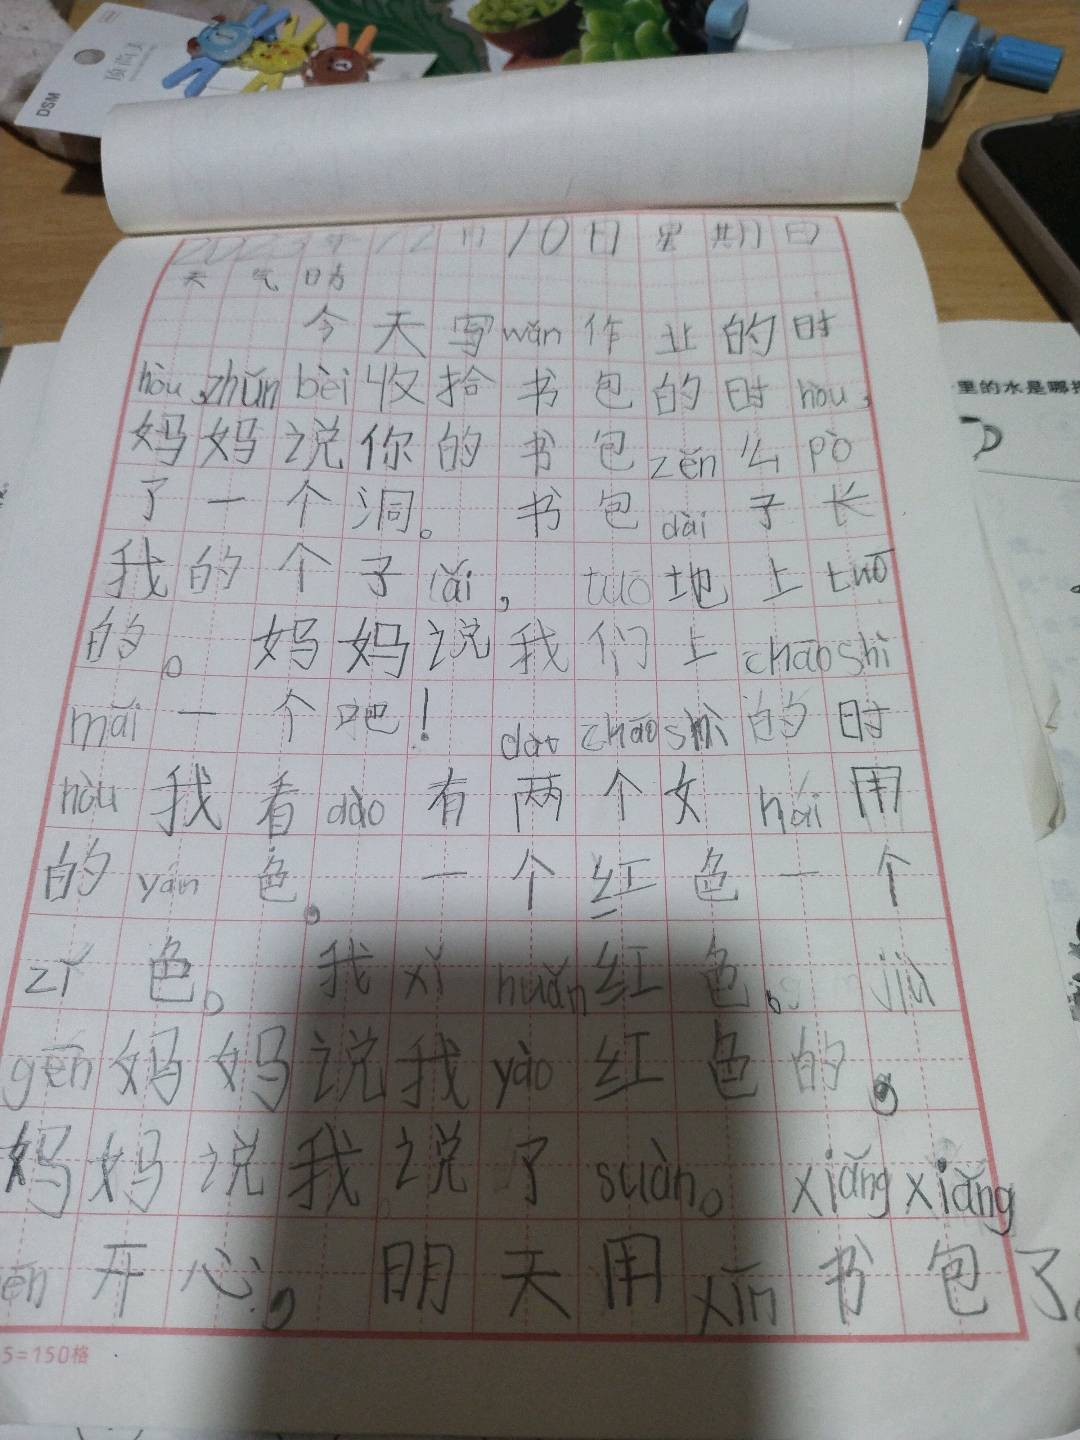 DSM
2023年12月10日星期日
天气晴
今天写wǎn作业的时
hòu,zhǔn bèi收拾书包的时hòu,
妈妈说你的书包zěn么pò
了一个洞。书包dài子长
我的个子ǎi,tuō地上tuō
的。妈妈说我们上chāoshì
mǎi一个吧!dào chāoshì的时
hòu我看dào有两个女hái用
的yán色。一个红色一个
zǐ色。我xǐ huǎn红色。jiù
gēn妈妈说我yào红色的。
妈妈说我说了suàn。xiǎng xiǎng
开心。明天用xīn书包了。
5=150格
里的水是哪